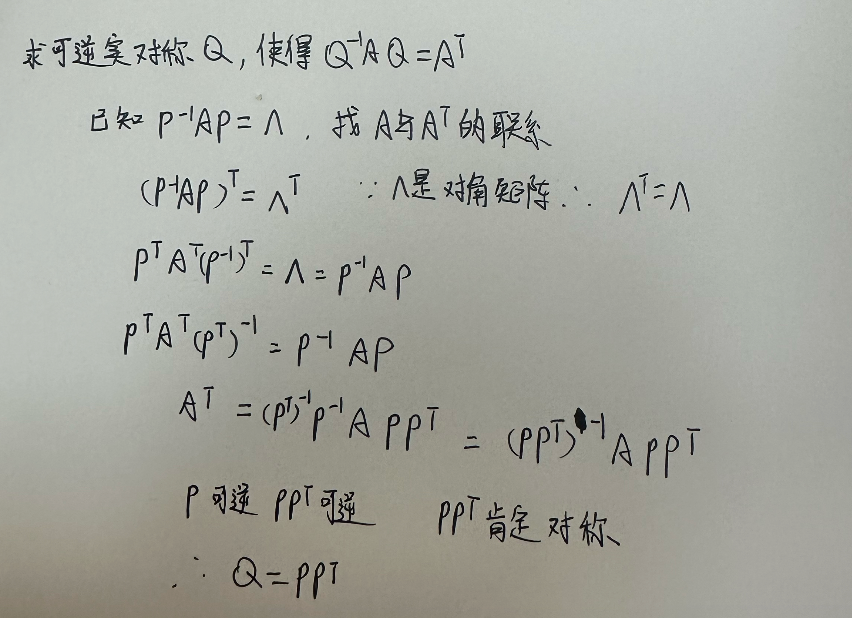 求可逆实对称Q,使得 Q⁻¹AQ=Aᵀ
已知 P⁻¹AP=Λ,找A与Aᵀ的联系
(P⁻¹AP)ᵀ=Λᵀ ∵Λ是对角矩阵∴ Λᵀ=Λ
PᵀAᵀ(P⁻¹)ᵀ=Λ=P⁻¹AP
PᵀAᵀ(Pᵀ)⁻¹=P⁻¹AP
Aᵀ=(Pᵀ)⁻¹P⁻¹APPᵀ=(PPᵀ)⁻¹APPᵀ
P可逆 PPᵀ可逆 PPᵀ肯定对称
∴ Q=PPᵀ